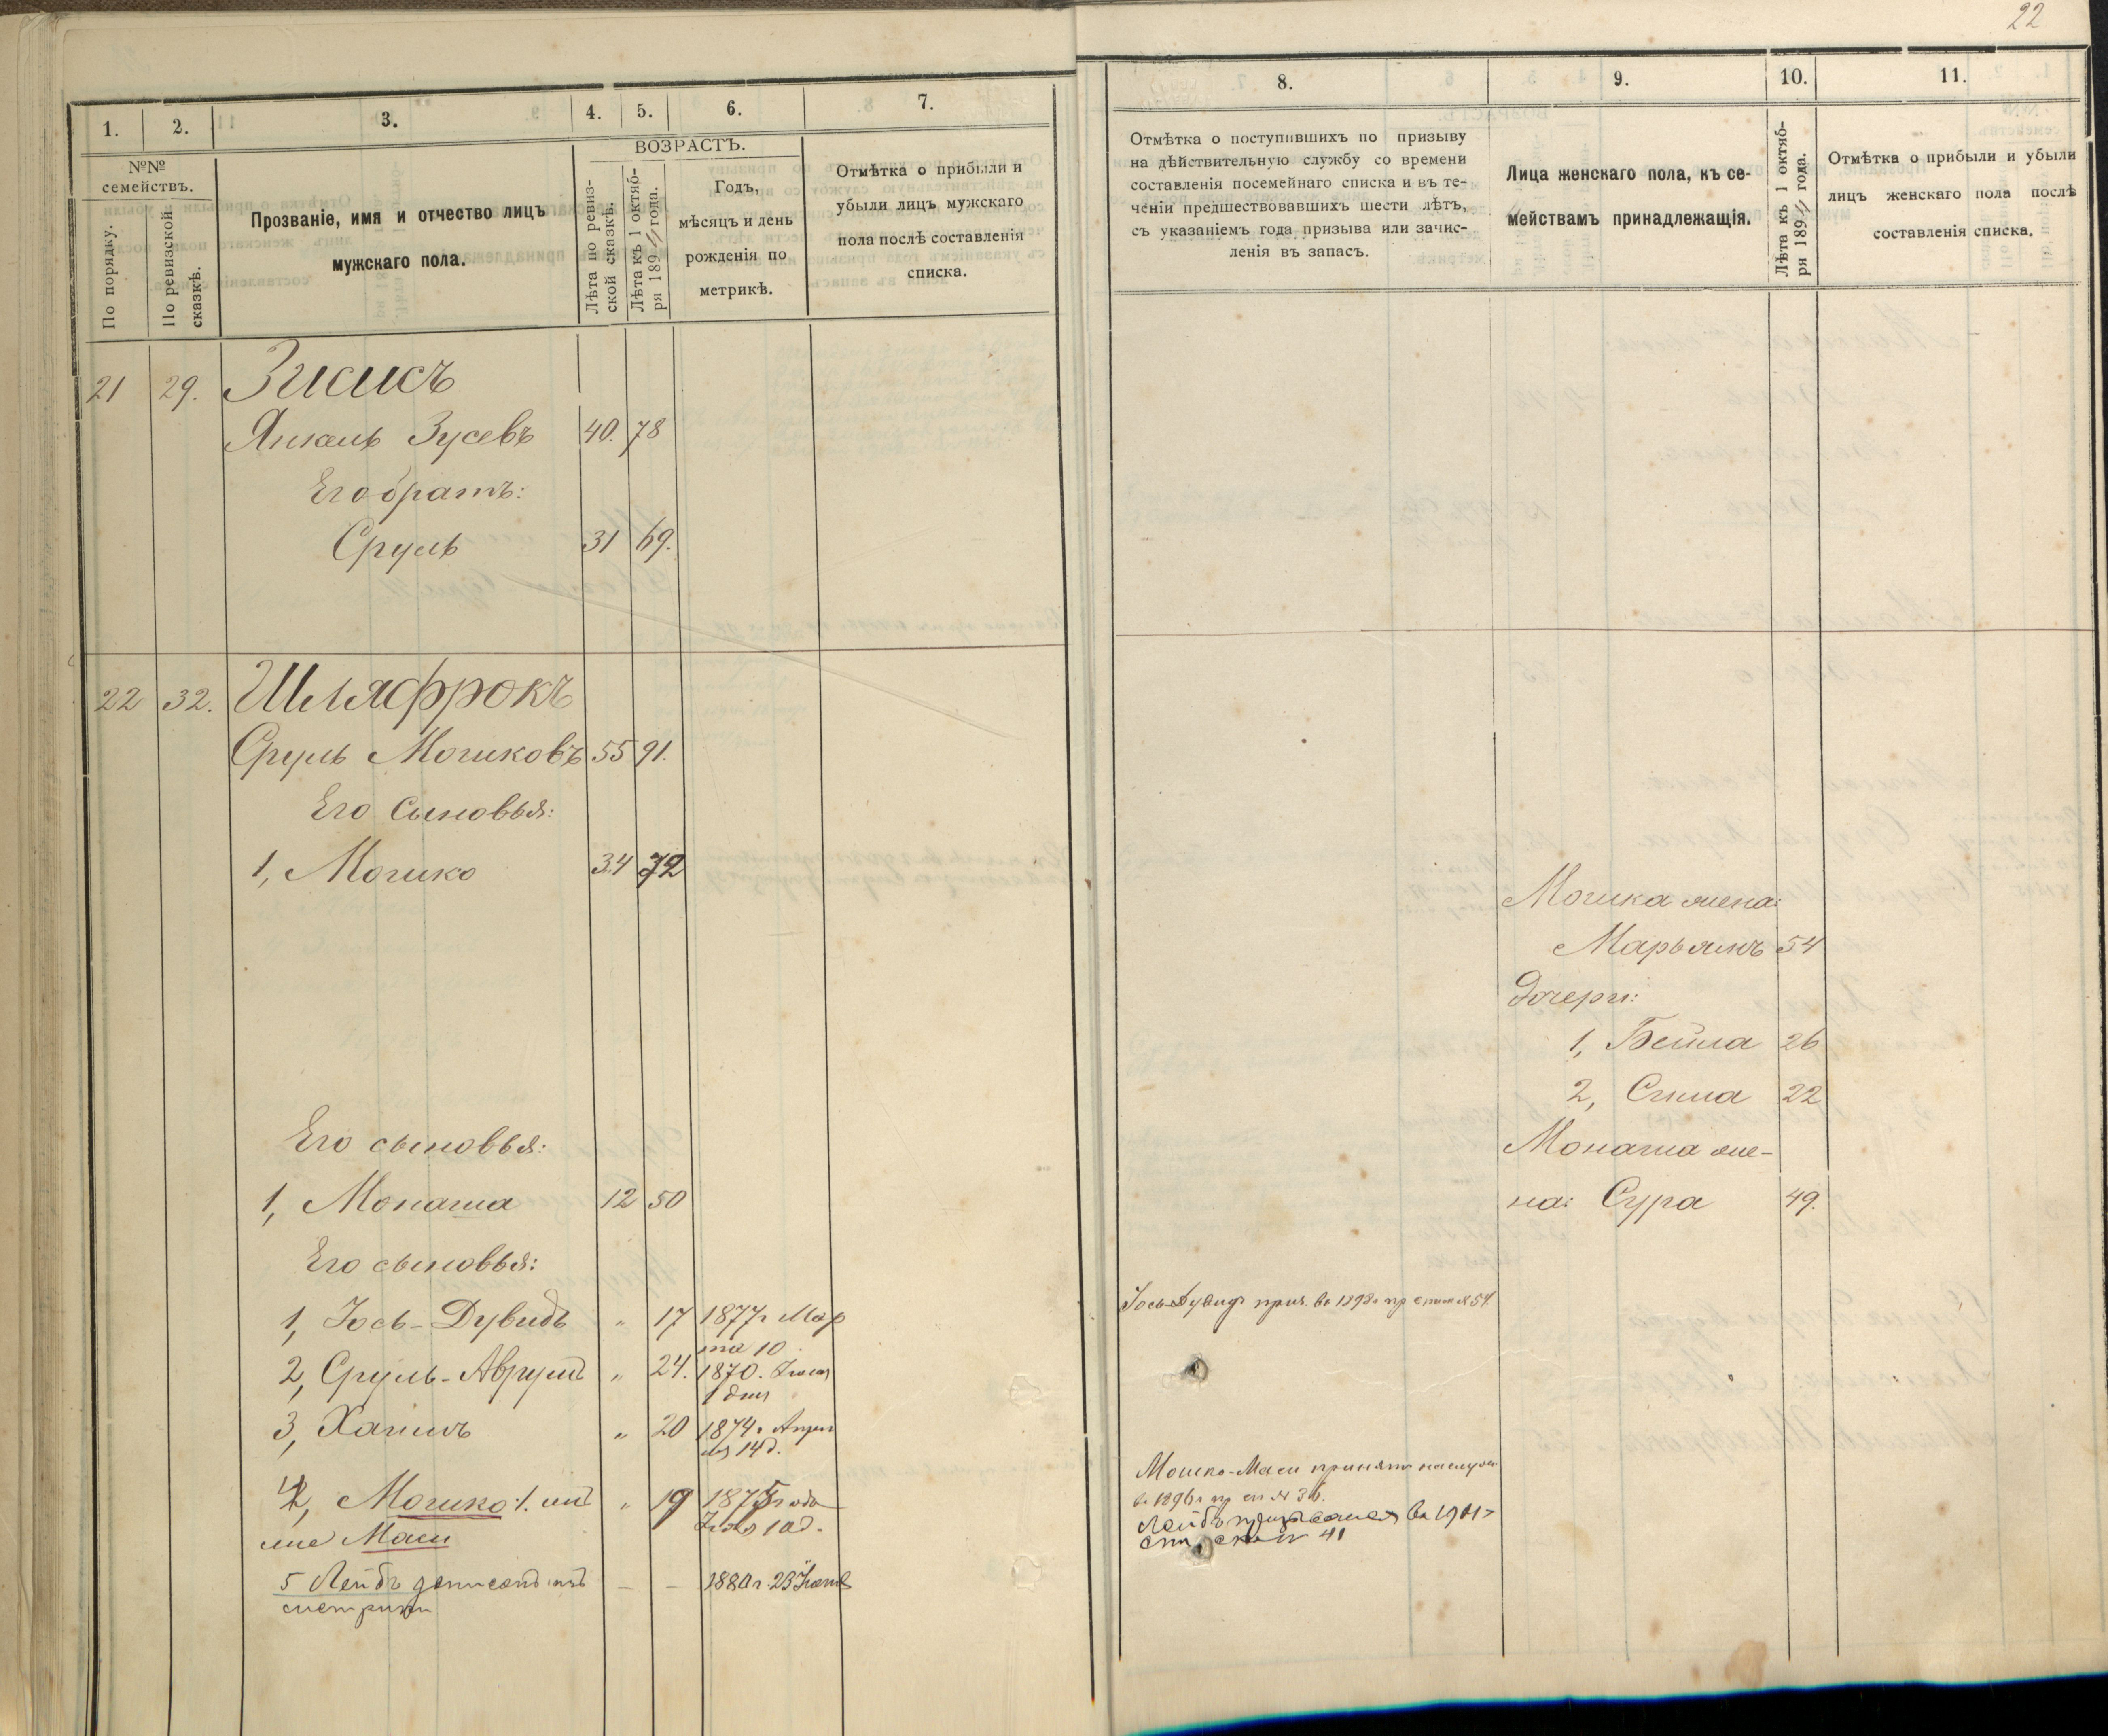 22
1. 2. 3. 4. 5. 6. 7.
№№ семействъ.
По порядку.
По ревизской сказкѣ.
Прозваніе, имя и отчество лицъ
мужскаго пола.
ВОЗРАСТЪ.
Лѣта по ревиз-
ской сказкѣ.
Лѣта къ 1 октяб-
ря 1894 года.
Годъ,
мѣсяцъ и день
рожденія по
метрикѣ.
Отмѣтка о прибыли и
убыли лицъ мужскаго
пола послѣ составленія
списка.
21 29. Зисисъ
Янкель Зусевъ 40. 78
Его братъ:
Сруль 31 69.
22 32. Шляфрокъ
Сруль Мошковъ 55 91.
Его сыновья:
1, Мошко 34 72
Его сыновья:
1, Монаша 12 50
Его сыновья:
1, Іось-Дувидъ „ 17 1877 г Мар
та 10
2, Сруль-Аврумъ „ 24. 1870. Іюля
1 дня
3, Хаимъ „ 20 1874 г. Апре
ля 14 д.
4, Мошко „ 19 1875 года
10 д.
Маси
5 Лейбъ дописанъ изъ — — 1880 г. 23
метрики
8. 9. 10. 11.
Отмѣтка о поступившихъ по призыву
на дѣйствительную службу со времени
составленія посемейнаго списка и въ те-
ченіи предшествовавшихъ шести лѣтъ,
съ указаніемъ года призыва или зачис-
ленія въ запасъ.
Лица женскаго пола, къ се-
мействамъ принадлежащія.
Лѣта къ 1 октяб-
ря 1894 года.
Отмѣтка о прибыли и убыли
лицъ женскаго пола послѣ
составленія списка.
Мошка жена:
Марьямъ 54
дочери:
1, Бейла 26
2, Сима 22
Монаша же-
на: Сура 49.
Іось-Дувидъ приз. въ 1898 г пр списк № 54.
Мошко-Маси принятъ на служ
въ 1896 г пр сп № 36.
Лейбъ призывался въ 1901 г
41